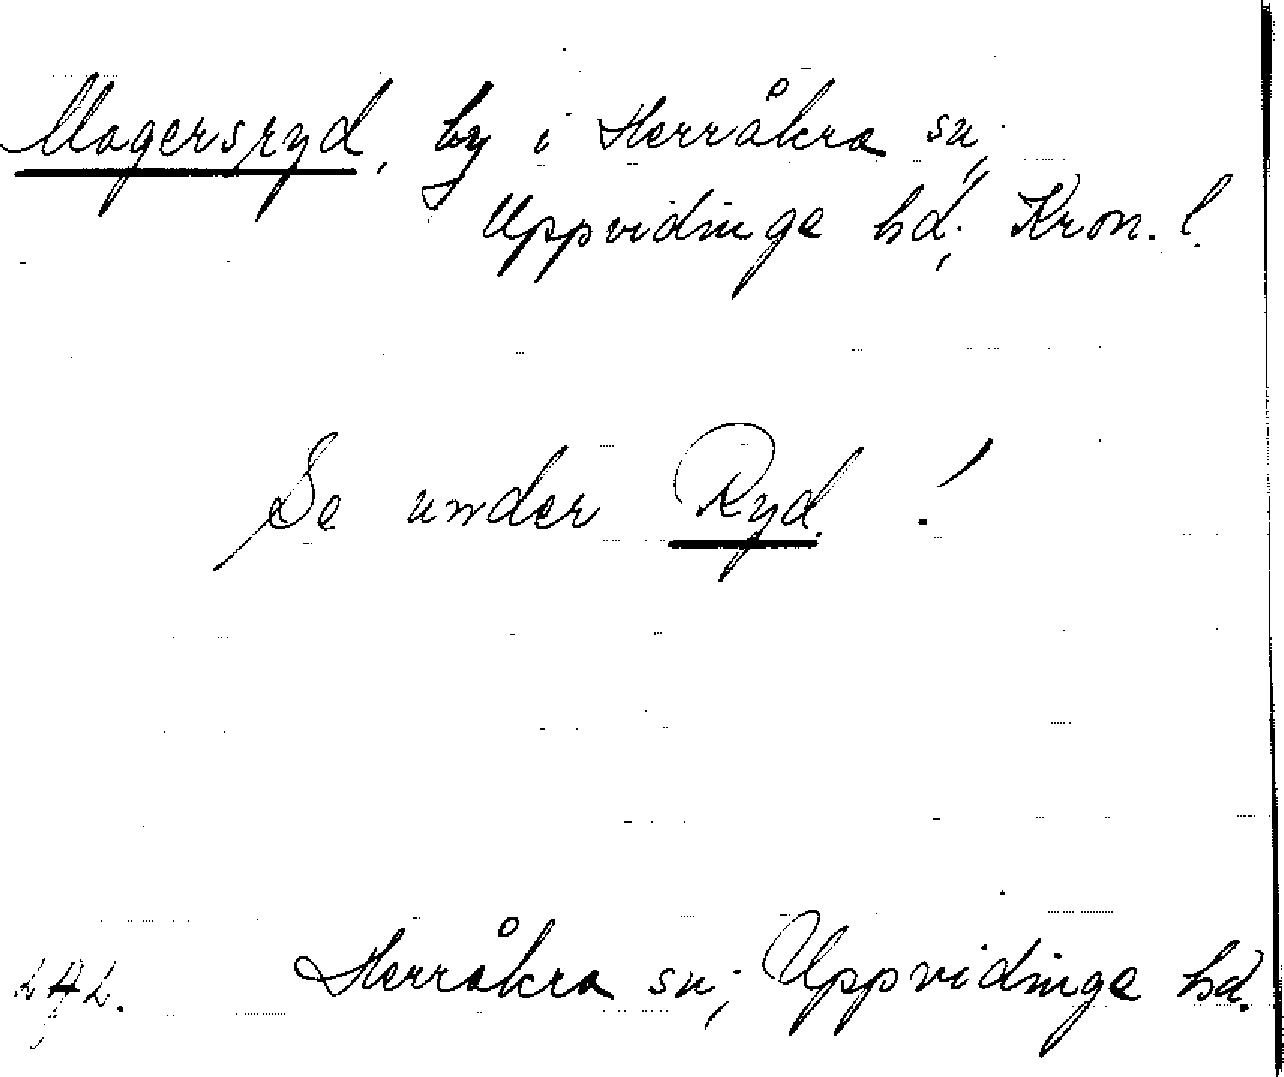 Magersryd, by i Herråkra sn.,
Uppvidinge hd., Kron. l.
Se under Ryd!
Herråkra sn., Uppvidinge hd.